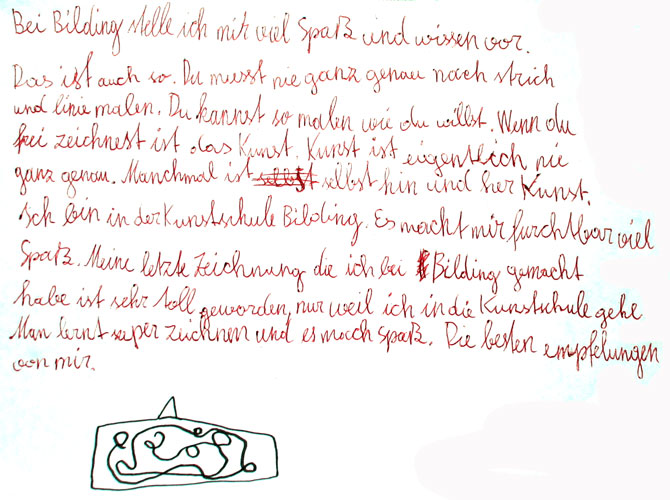 Bei Bilding stelle ich mir viel Spaß und wissen vor.
Das ist auch so. Du musst nie ganz genau nach strich
und linie malen. Du kannst so malen wie du willst. Wenn du
frei zeichnest ist das Kunst. Kunst ist eigentlich nie
ganz genau. Manchmal ist selbst hin und her Kunst.
Ich bin in der Kunstschule Bilding. Es macht mir furchtbar viel
Spaß. Meine letzte Zeichnung die ich bei Bilding gemacht
habe ist sehr toll geworden, nur weil ich in die Kunstschule gehe
Man lernt super zeichnen und es mach Spaß. Die besten empfelungen
von mir.